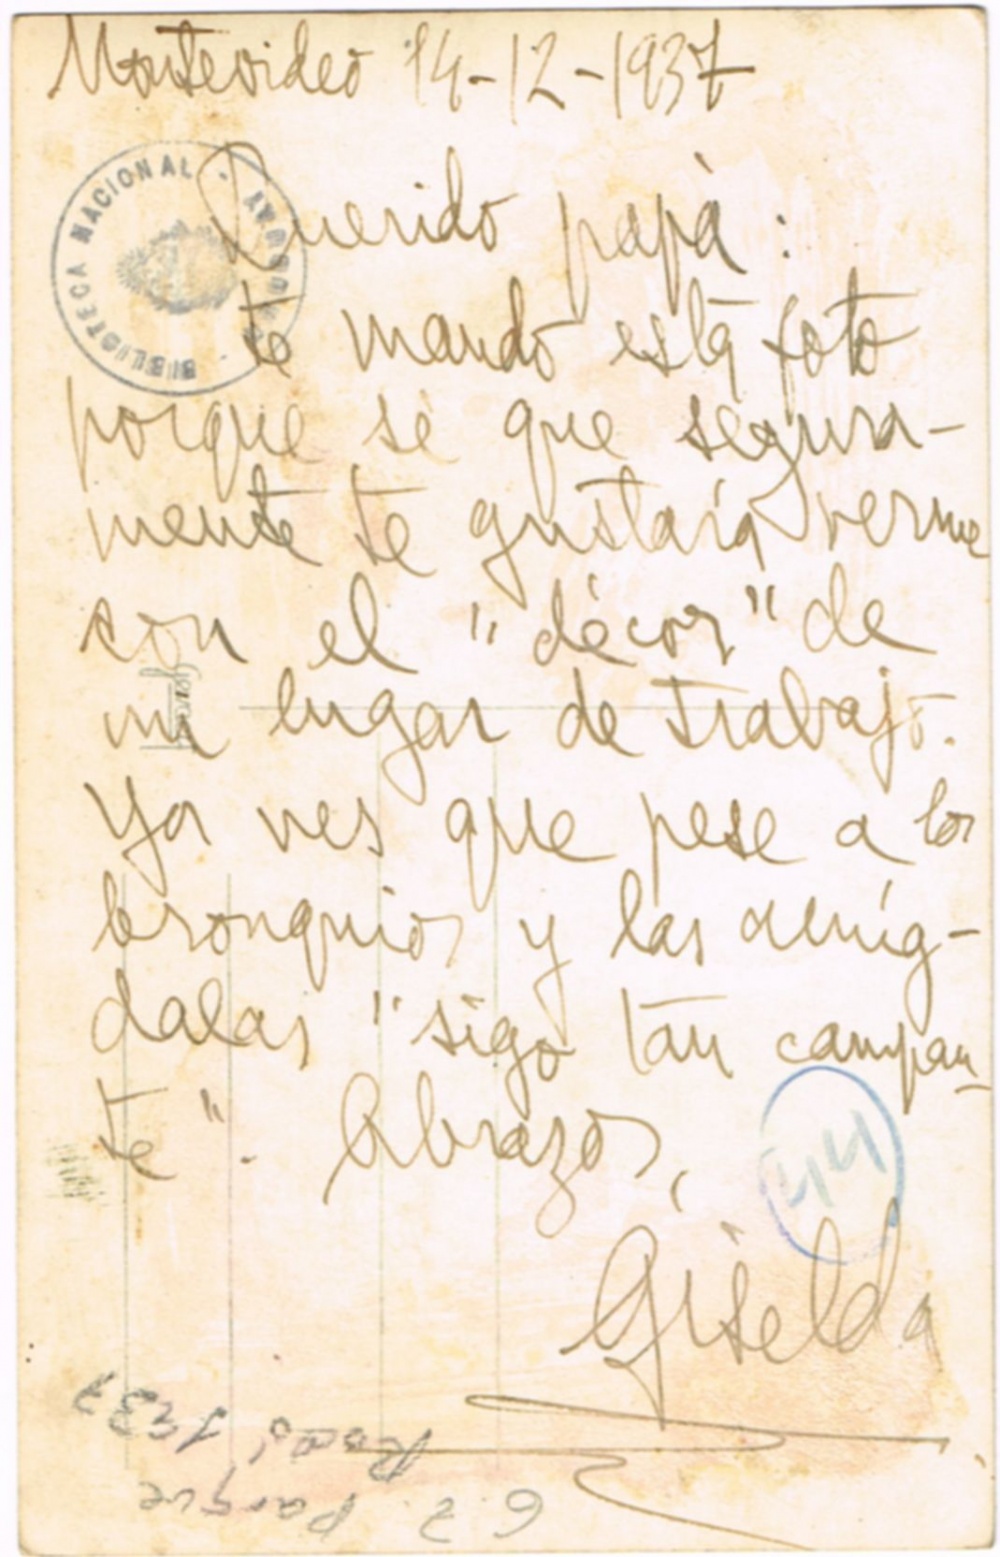 Montevideo 14-12-1937
BIBLIOTECA NACIONAL
Querido papá:
te mando esta foto
porque sé que segura-
mente te gustaría verme
con el "décor" de
mi lugar de trabajo.
Ya ves que pese a los
bronquios y las amíg-
dalas "sigo tan campan-
te". Abrazos,
44
Giselda
G. Z. Parque
Rodó 1937